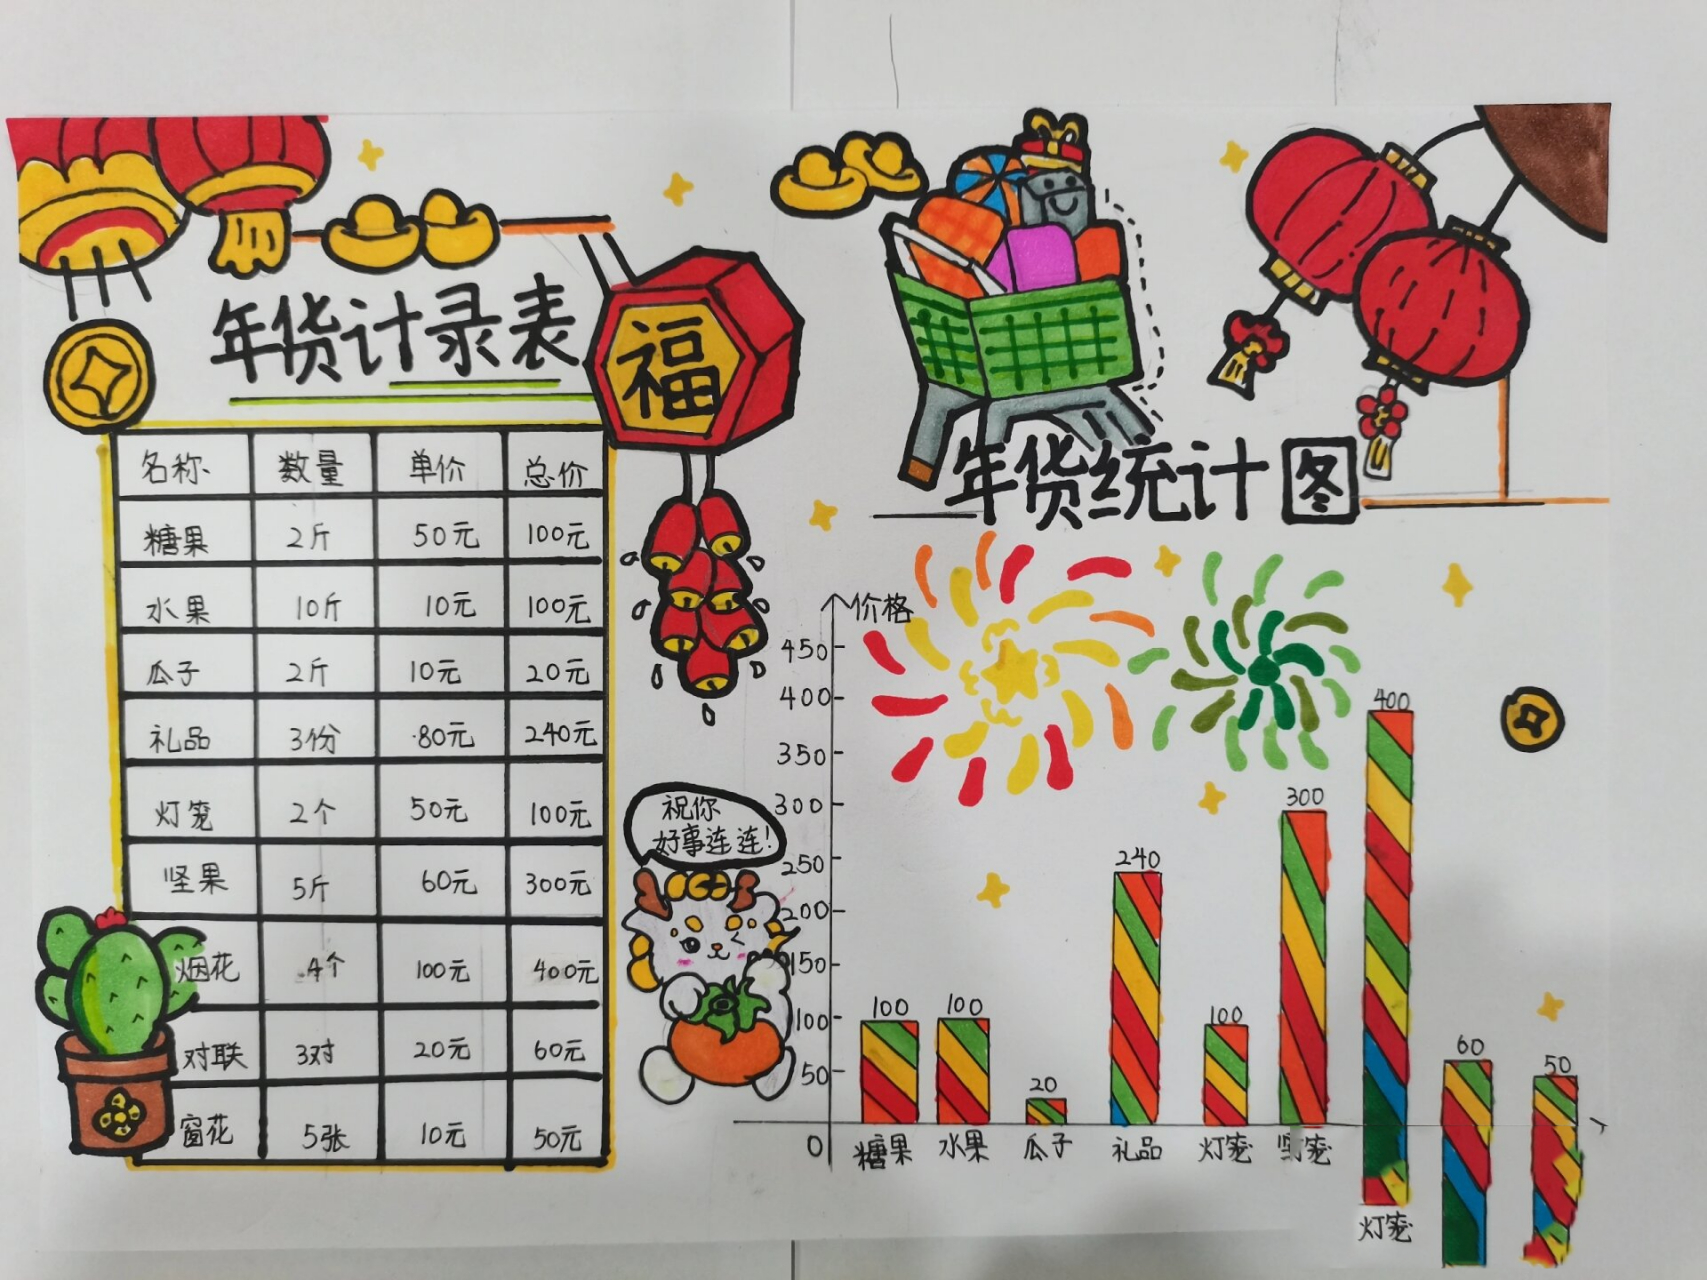 年货计录表
福
名称 数量 单价 总价
糖果 2斤 50元 100元
水果 10斤 10元 100元
瓜子 2斤 10元 20元
礼品 3份 80元 240元
灯笼 2个 50元 100元
坚果 5斤 60元 300元
烟花 4个 100元 400元
对联 3对 20元 60元
窗花 5张 10元 50元
祝你
好事连连!
年货统计图
价格
450
400
350
300
250
200
150
100
50
0
100
100
20
240
100
300
400
60
50
糖果 水果 瓜子 礼品 灯笼 笼
灯笼